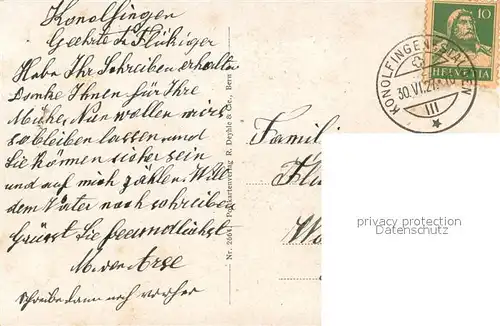 Konolfingen
Geehrte Fr Flükiger
Habe Ihr Schreiben erhalten
Danke Ihnen für Ihre
Mühe, Nun wollen wirs
so bleiben lassen, und
Sie können sicher sein
und auf mich zählen. Will
dem Vater noch schreiben
Grüsst Sie freundlichst
M. von Arse
schreibe dann noch vorher
Nr. 2664 Postkartenverlag R. Deyhle & Co., Bern
Famili
Fl
KONOLFINGEN-STALDEN
30.VI.27.
III
10
HELVETIA
privacy protection
Datenschutz